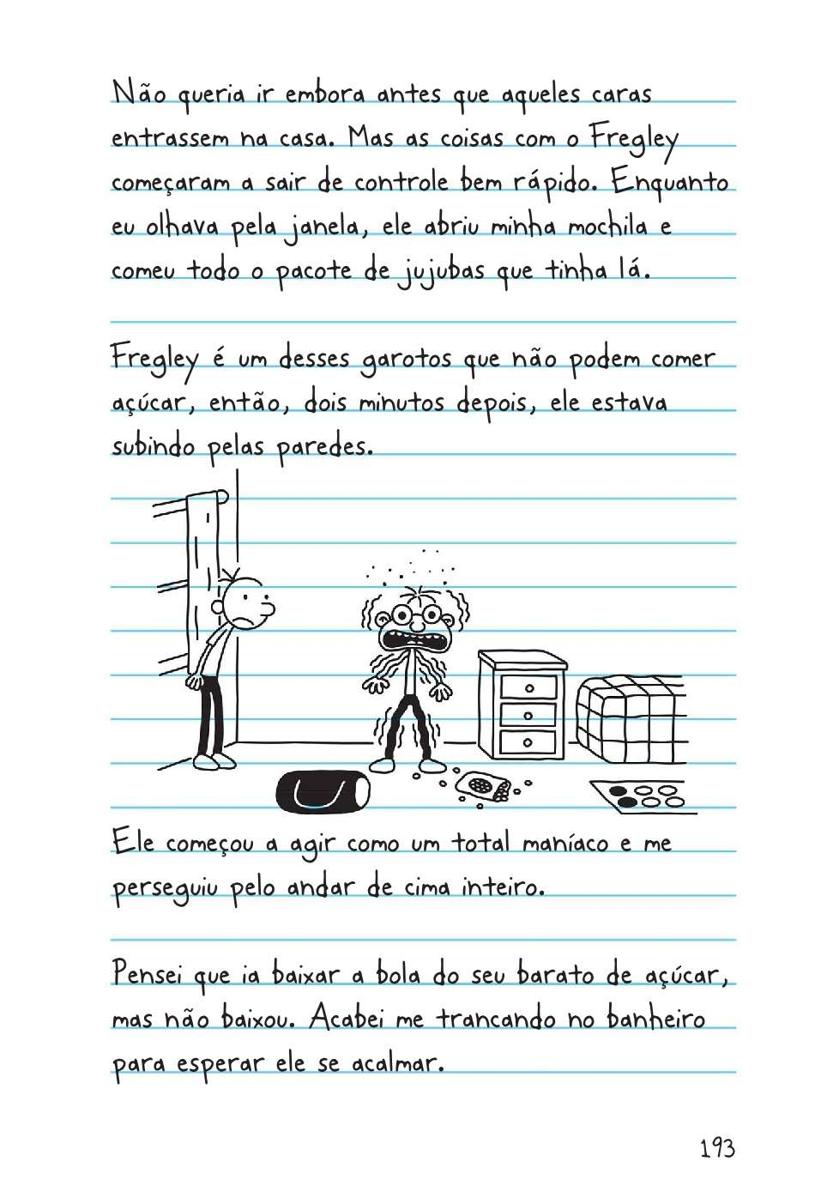 Não queria ir embora antes que aqueles caras
entrassem na casa. Mas as coisas com o Fregley
começaram a sair de controle bem rápido. Enquanto
eu olhava pela janela, ele abriu minha mochila e
comeu todo o pacote de jujubas que tinha lá.
Fregley é um desses garotos que não podem comer
açúcar, então, dois minutos depois, ele estava
subindo pelas paredes.
Ele começou a agir como um total maníaco e me
perseguiu pelo andar de cima inteiro.
Pensei que ia baixar a bola do seu barato de açúcar,
mas não baixou. Acabei me trancando no banheiro
para esperar ele se acalmar.
193